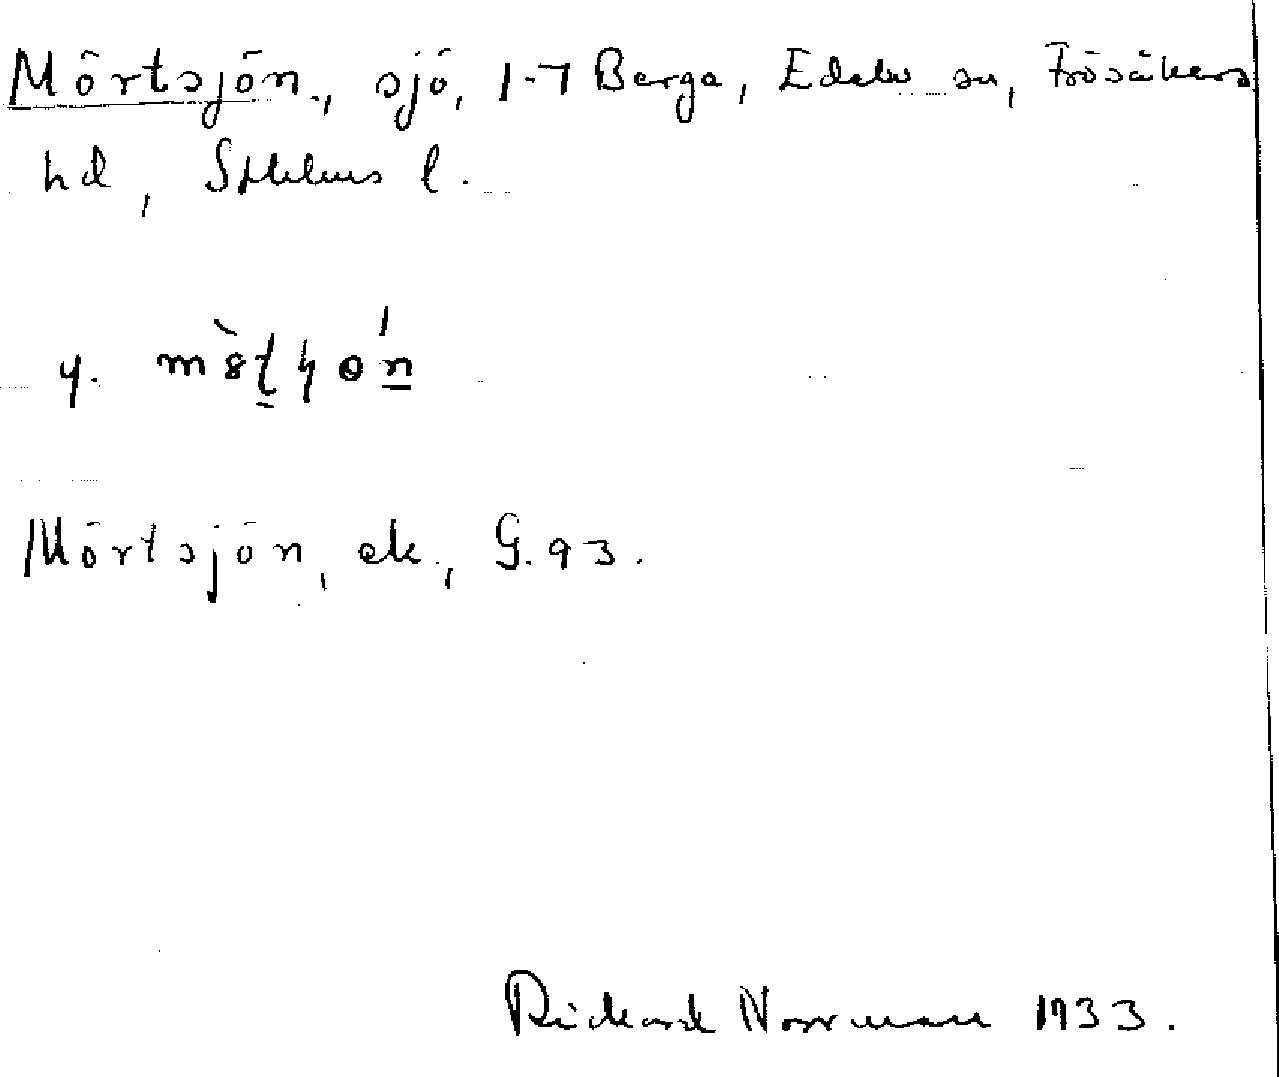 Mörtsjön, sjö, 1-7 Berga, Edebo sn, Frösåkers
hd, Sthlms l.
Mörtsjön, ek., G.93.
Rickard Norrman 1933.